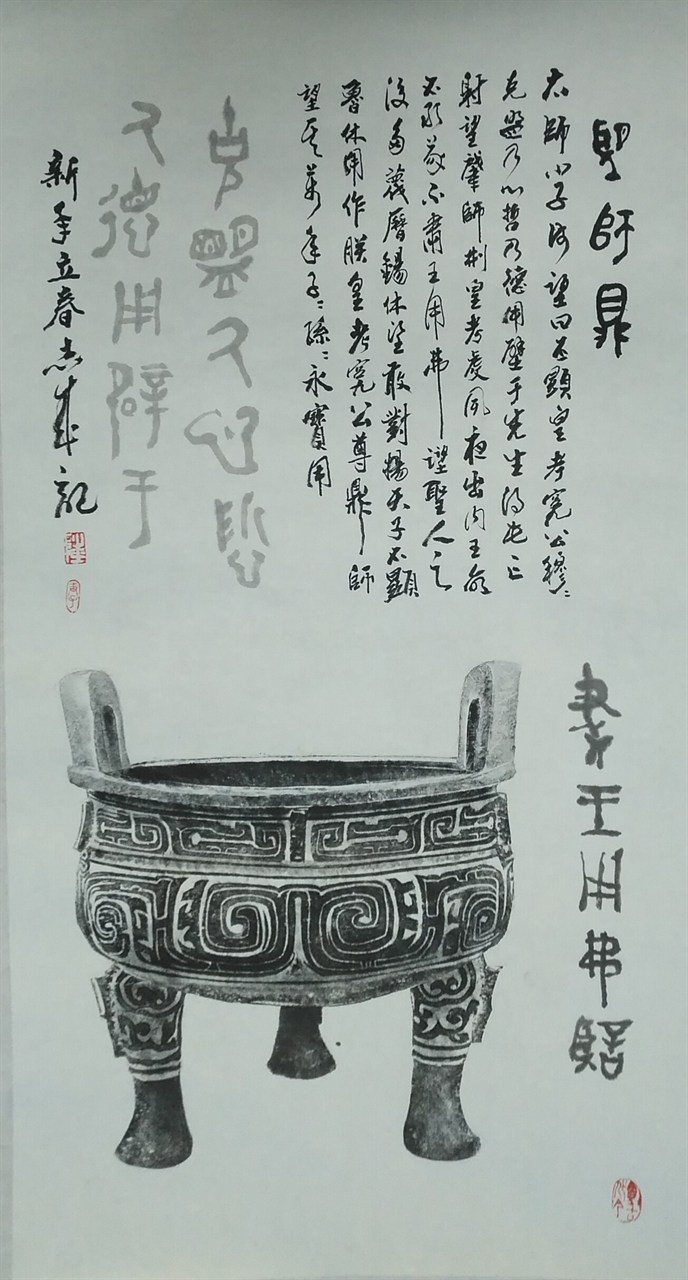 望師鼎
大師小子師望曰不顯皇考宄公穆〻
克盟乃心哲乃德用辟于先王得屯亡
望肇帥刑皇考虔夙夜出内王命
不敢不肅王用弗聖人之
後多蔑曆錫休望敢對揚天子不顯
魯休用作朕皇考宄公尊鼎師
望其萬年子〻孫〻永寶用
盟厥心哲
厥德用辟于
新年立春志成記
王用弗